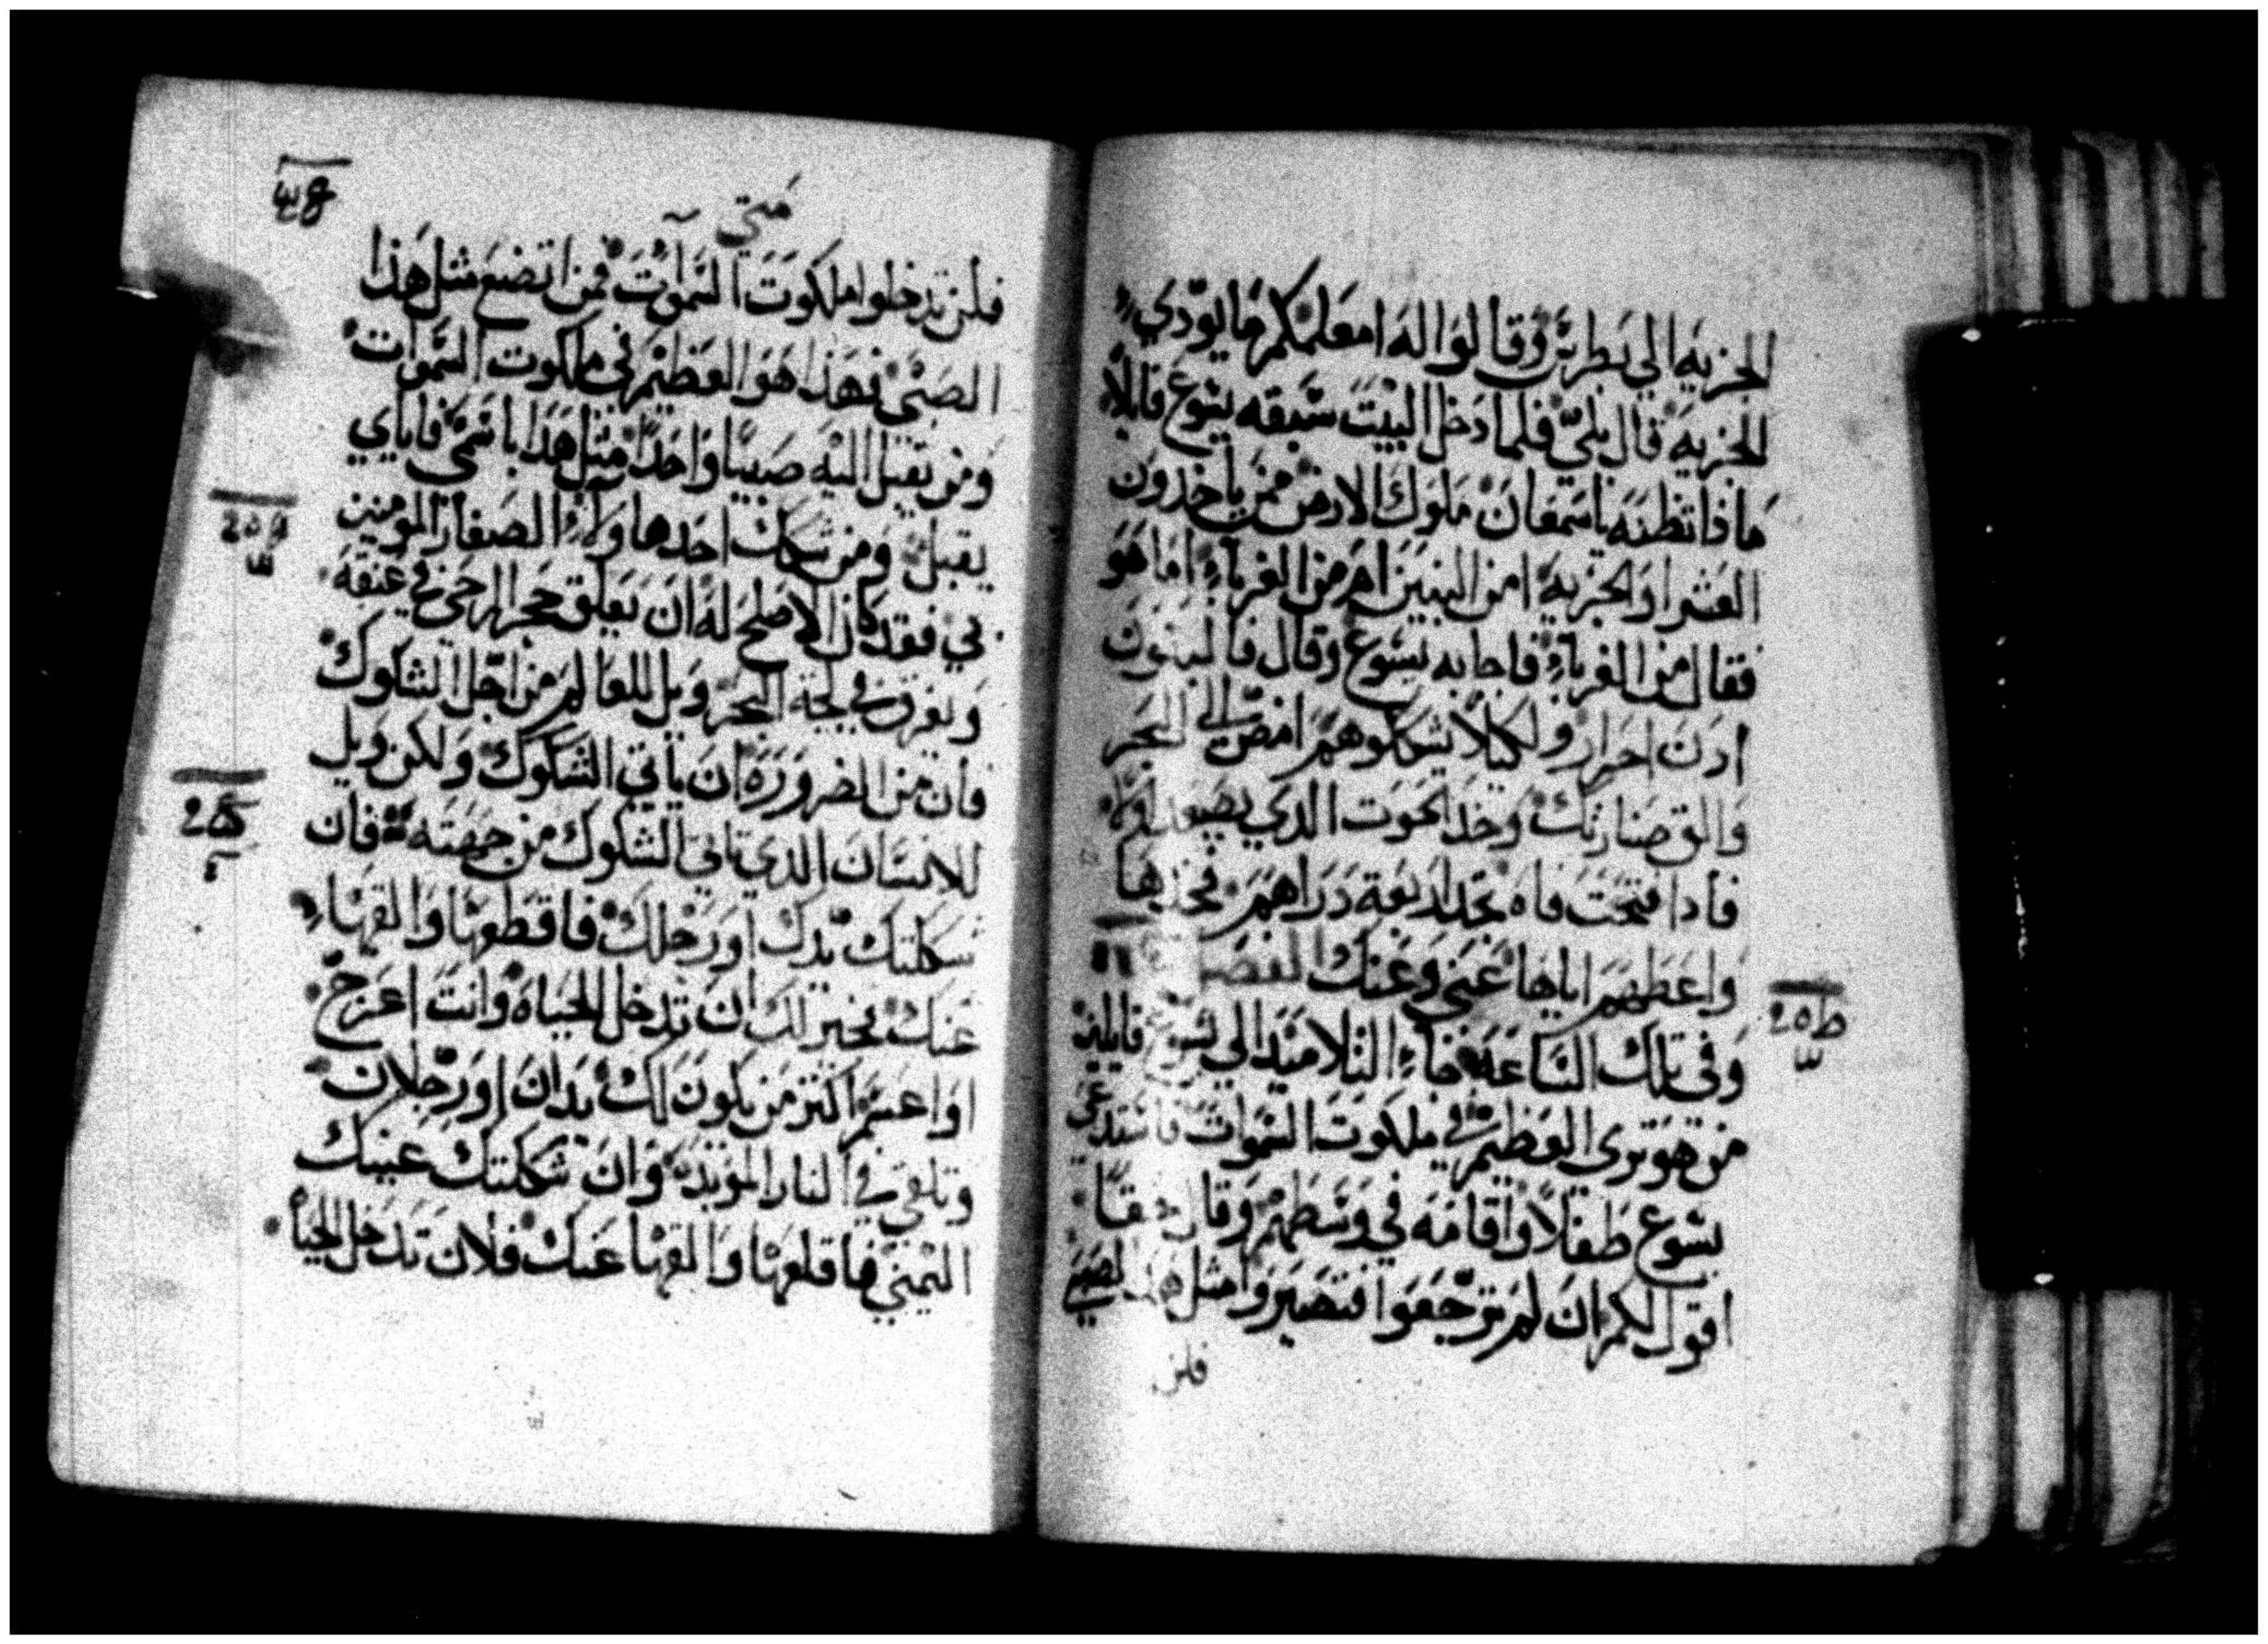 الجزيه الي بطرس وقالوا له امعلمكم ما يودي
الجزيه قال بلي فلما دخل البيت سبقه يسوع قايلا
ماذا تظنه ياسمعان ملوك الارض ممن ياخذون
العشوا والجزية امن البنين ام من الغرباء اما هو
فقال من الغرباء فاجابه يسوع وقال فالبنون
ادن احرار ولكيلا نشككوهم امض الي البحر
والق صنارتك وخذ الحوت الدي يصعد اولا
فادا فتحت فاه تجد اربعة دراهم فخدها
واعطهم اياها عني وعنك الفصل
وفي تلك الساعة جاء التلاميد الي يسوع قايلين
من هو تري العظيم في ملكوت السموات فاستدعي
يسوع طفلا واقامه في وسطهم وقال حقا
اقول لكم ان لم ترجعوا فتصيروا مثل هذا الصبي
فلن
متي
فلن تدخلوا ملكوت السموات فمن اتضع مثل هذا
الصبي فهذا هو العظيم في ملكوت السموات
ومن يقبل اليه صبيا واحدا مثل هذا باسمي فاياي
يقبل ومن شكك احد هاولاء الصغار المومنين
بي فقد كان الاصلح له ان يعلق حجر الرحي في عنقه
ويغرق في لجة البحر ويل للعالم من اجل الشكوك
فان من الضرورة ان ياتي الشكوك ولكن ويل
للانسان الدي تاتي الشكوك من جهته فان
شككتك يدك او رجلك فاقطعها والقها
عنك فخير لك ان تدخل الحياه وانت اعرج
او اعسم اكثر من يكون لك يدان او رجلان
وتلقي في النار الموبدة وان شككتك عينك
اليمني فاقلعها والقها عنك فلان تدخل الحياه